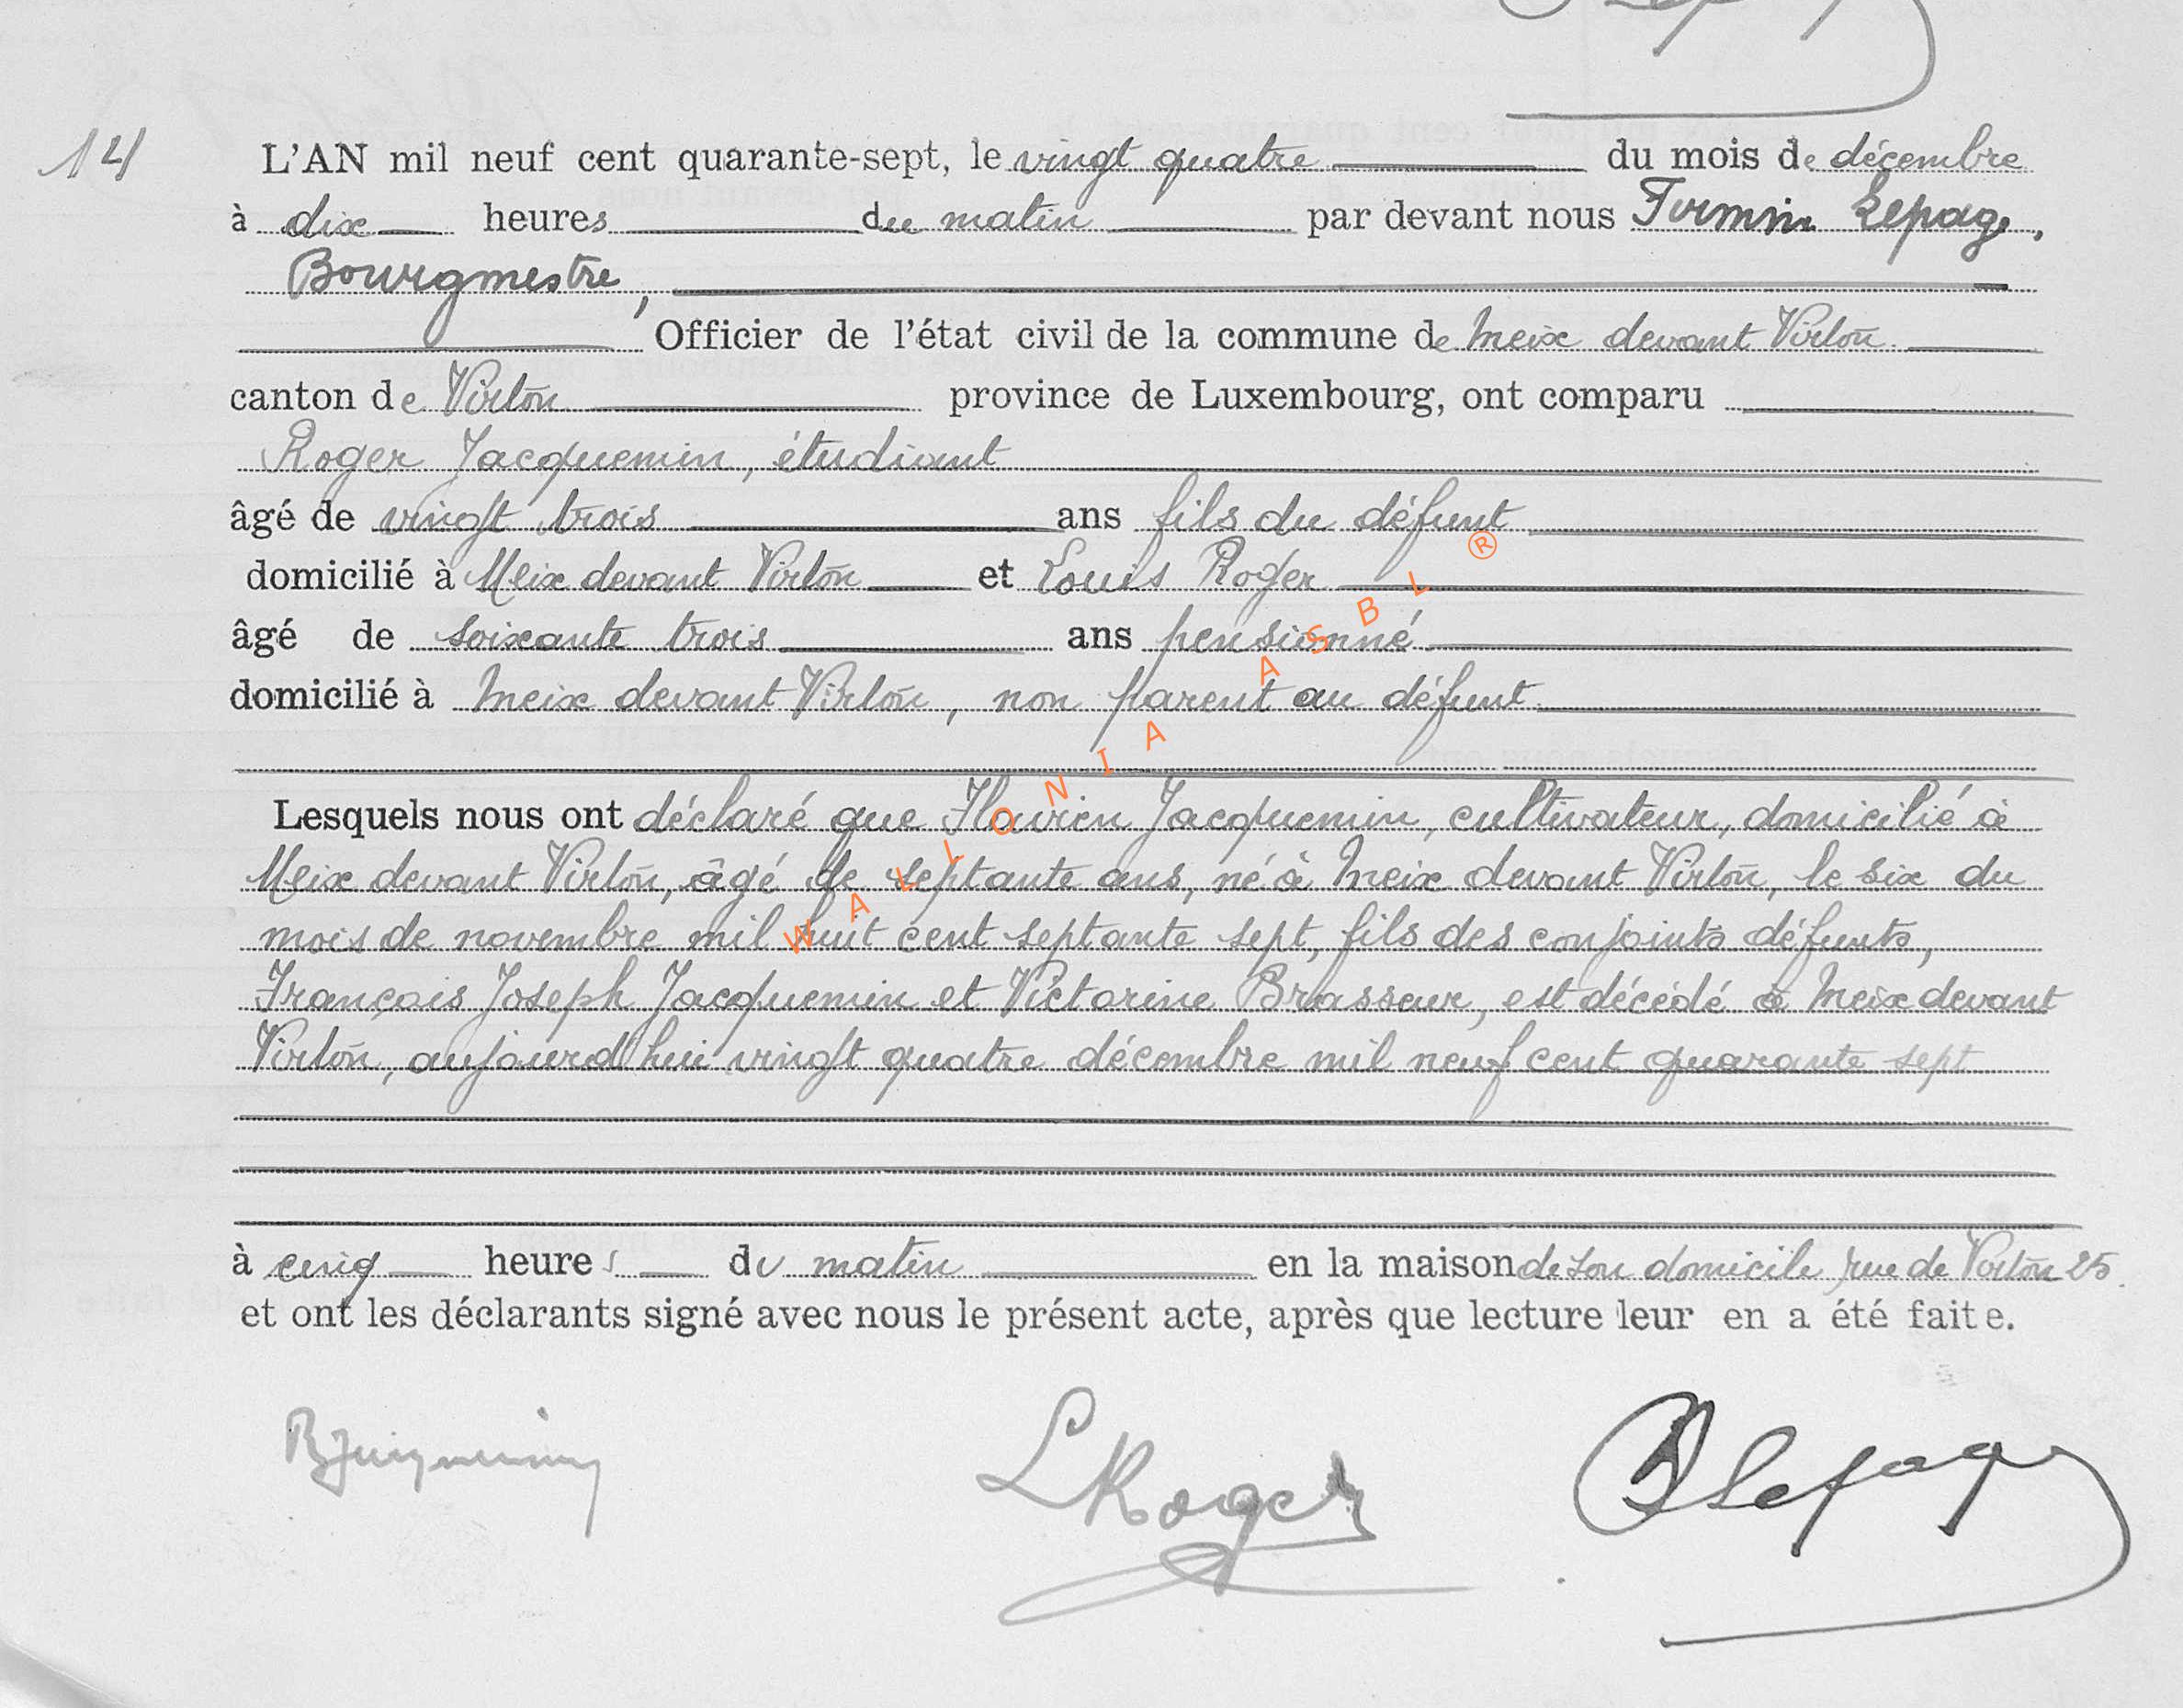 14
L'AN mil neuf cent quarante-sept, le vingt quatre du mois de décembre
à dix heures du matin par devant nous Firmin Lepage,
Bourgmestre,
Officier de l'état civil de la commune de Meix devant Virton
canton de Virton province de Luxembourg, ont comparu
Roger Jacquemin, étudiant
âgé de vingt trois ans fils du défunt
domicilié à Meix devant Virton et Louis Roger
âgé de soixante trois ans pensionné
domicilié à Meix devant Virton, non parent au défunt
Lesquels nous ont déclaré que Flavien Jacquemin, cultivateur, domicilié à
Meix devant Virton, âgé de septante ans, né à Meix devant Virton, le six du
mois de novembre mil huit cent septante sept, fils des conjoints défunts,
François Joseph Jacquemin et Victorine Brasseur, est décédé à Meix devant
Virton, aujourd'hui vingt quatre décembre mil neuf cent quarante sept
à cinq heures du matin en la maison de son domicile, rue de Virton 25.
et ont les déclarants signé avec nous le présent acte, après que lecture leur en a été faite.
RJacquemin LRoger Lepage
WALLONIA ASBL ®